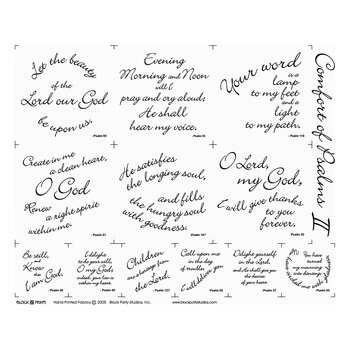 Let the beauty
of the
Lord our God
be upon us.
Psalm 90
Evening
Morning and Noon
will I
pray and cry aloud:
He shall
hear my voice.
Psalm 55
Your word
is a
lamp
to my feet
and a
light
to my path.
Psalm 119
Comfort of Psalms II
Create in me
a clean heart,
O God
Renew
a right spirit
within me.
Psalm 51
He satisfies
the longing soul,
and fills
the hungry soul
with goodness.
Psalm 107
O Lord,
my God,
I will give thanks
to you
forever.
Psalm 30
Be still,
and
Know
that
I am God.
Psalm 46
I delight
to do will,
O my God:
indeed, your law
is within me.
Psalm 40
Children
are a heritage
from the
Lord.
Psalm 127
Call upon me
in the day
of trouble;
I will deliver you.
Delight yourself
in the Lord:
and He shall give you
the desires
of your heart.
Psalm 37
You have
turned my
mourning
into dancing
Psalm 30
BLOCK PARTY Hand Printed Fabrics © 2005 Block Party Studios, Inc. www.blockpartystudios.com